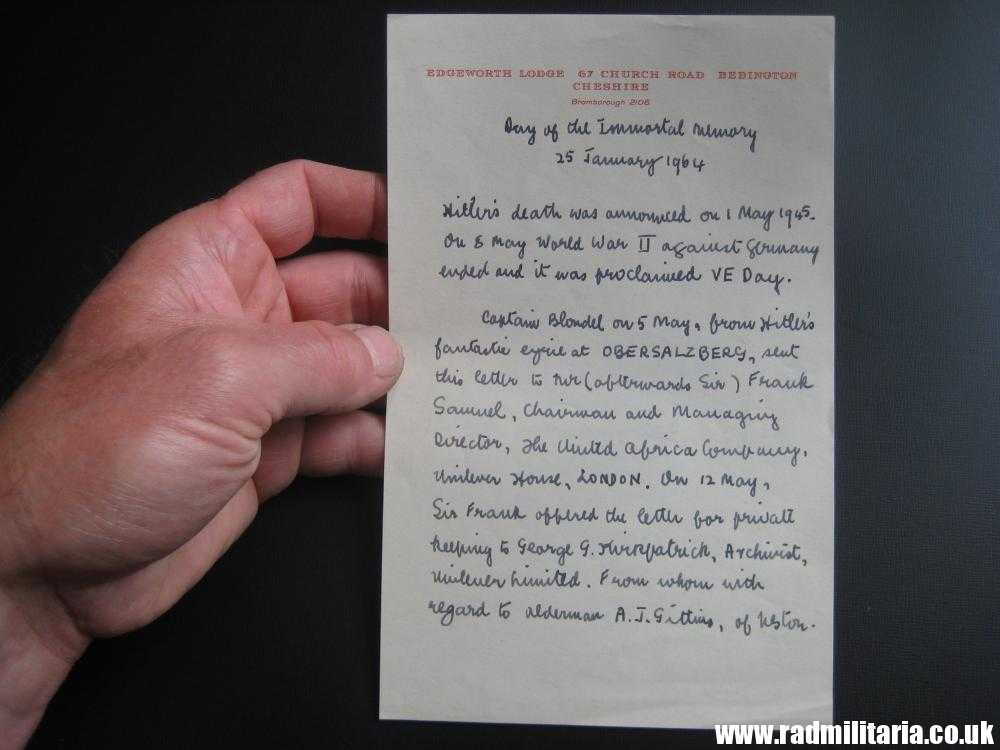 EDGEWORTH LODGE 67 CHURCH ROAD BEBINGTON
CHESHIRE
Bromborough 2106
Day of the Immortal Memory
25 January 1964
Hitler's death was announced on 1 May 1945.
On 8 May World War II against Germany
ended and it was proclaimed VE Day.
Captain Blondel on 5 May, from Hitler's
fantastic eyrie at OBERSALZBERG, sent
this letter to Mr (afterwards Sir) Frank
Samuel, Chairman and Managing
Director, The United Africa Company,
Unilever House, LONDON. On 12 May,
Sir Frank offered the letter for private
keeping to George G. Kirkpatrick, Archivist,
Unilever Limited. From whom with
regard to alderman A.J. Gittins, of Neston.
www.radmilitaria.co.uk